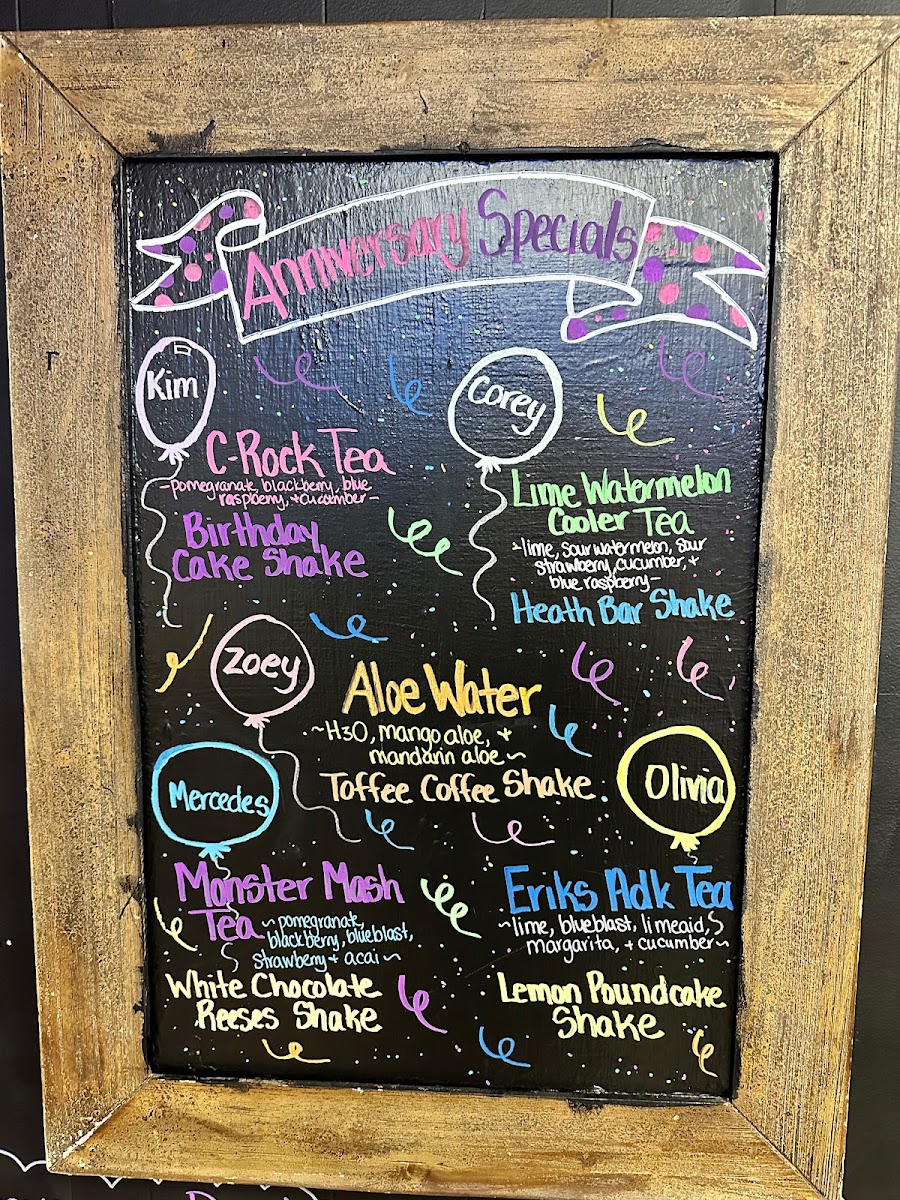 Anniversary Specials
Kim
C-Rock Tea
-pomegranate, blackberry, blue
raspberry, + cucumber-
Birthday
Cake Shake
Corey
Lime Watermelon
Cooler Tea
-lime, sour watermelon, sour
strawberry, cucumber, +
blue raspberry-
Heath Bar Shake
Zoey
Aloe Water
~H3O, mango aloe, +
mandarin aloe~
Toffee Coffee Shake
Mercedes
Monster Mash
Tea ~pomegranate,
blackberry, blueblast,
strawberry + acai~
White Chocolate
Reeses Shake
Olivia
Eriks Adk Tea
~lime, blueblast, limeaid,
margarita, + cucumber~
Lemon Poundcake
Shake